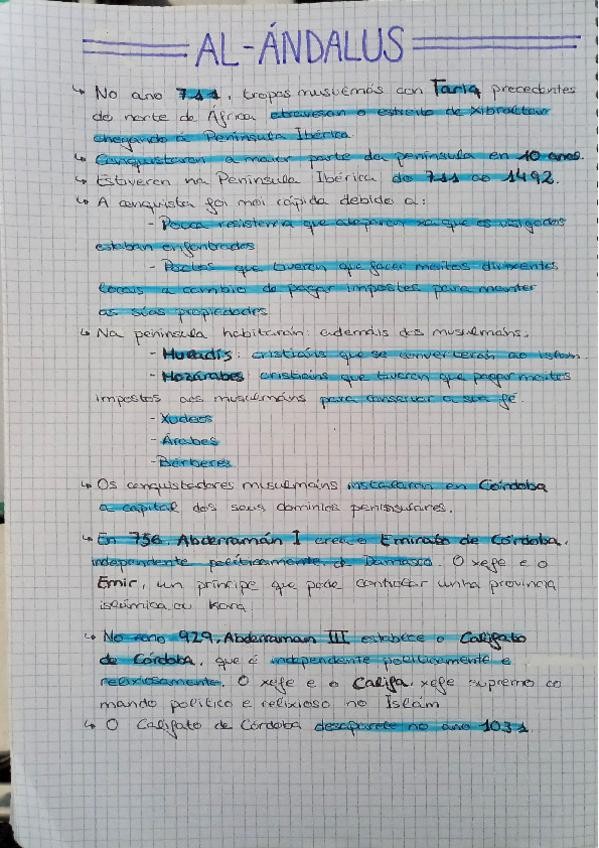 AL-ÁNDALUS
↳ No ano 711, tropas musulmás con Tariq procedentes
do norte de África atravesan o estreito de Xibraltar
chegando á Península Ibérica.
↳ Conquistaron a maior parte da península en 10 anos.
↳ Estiveron na Península Ibérica, do 711 ao 1492.
↳ A conquista foi moi rápida debido a:
- Pouca resistencia que atoparon xa que os visigodos
estaban enfrontados
- Pactos que tiveron que facer moitos dirixentes
locais a cambio de pagar impostos para manter
as súas propiedades
↳ Na península habitarán ademáis dos musulmáns:
- Muladís: cristiáns que se converterán ao islam.
- Mozárabes: cristiáns que tiveron que pagar moitos
impostos aos musulmáns para conservar a súa fé.
- Xudeos
- Árabes
- Bérberes
↳ Os conquistadores musulmáns instalaron en Córdoba
a capital dos seus dominios peninsulares.
↳ En 756 Abderramán I crea o Emirato de Córdoba,
independente politicamente de Damasco. O xefe é o
Emir, un príncipe que pode controlar unha provincia
islámica ou Kora
↳ No ano 929, Abderraman III establece o Califato
de Córdoba, que é independente politicamente e
relixiosamente. O xefe é o Califa, xefe supremo co
mando político e relixioso no Islám
↳ O Califato de Córdoba desaparece no ano 1031.